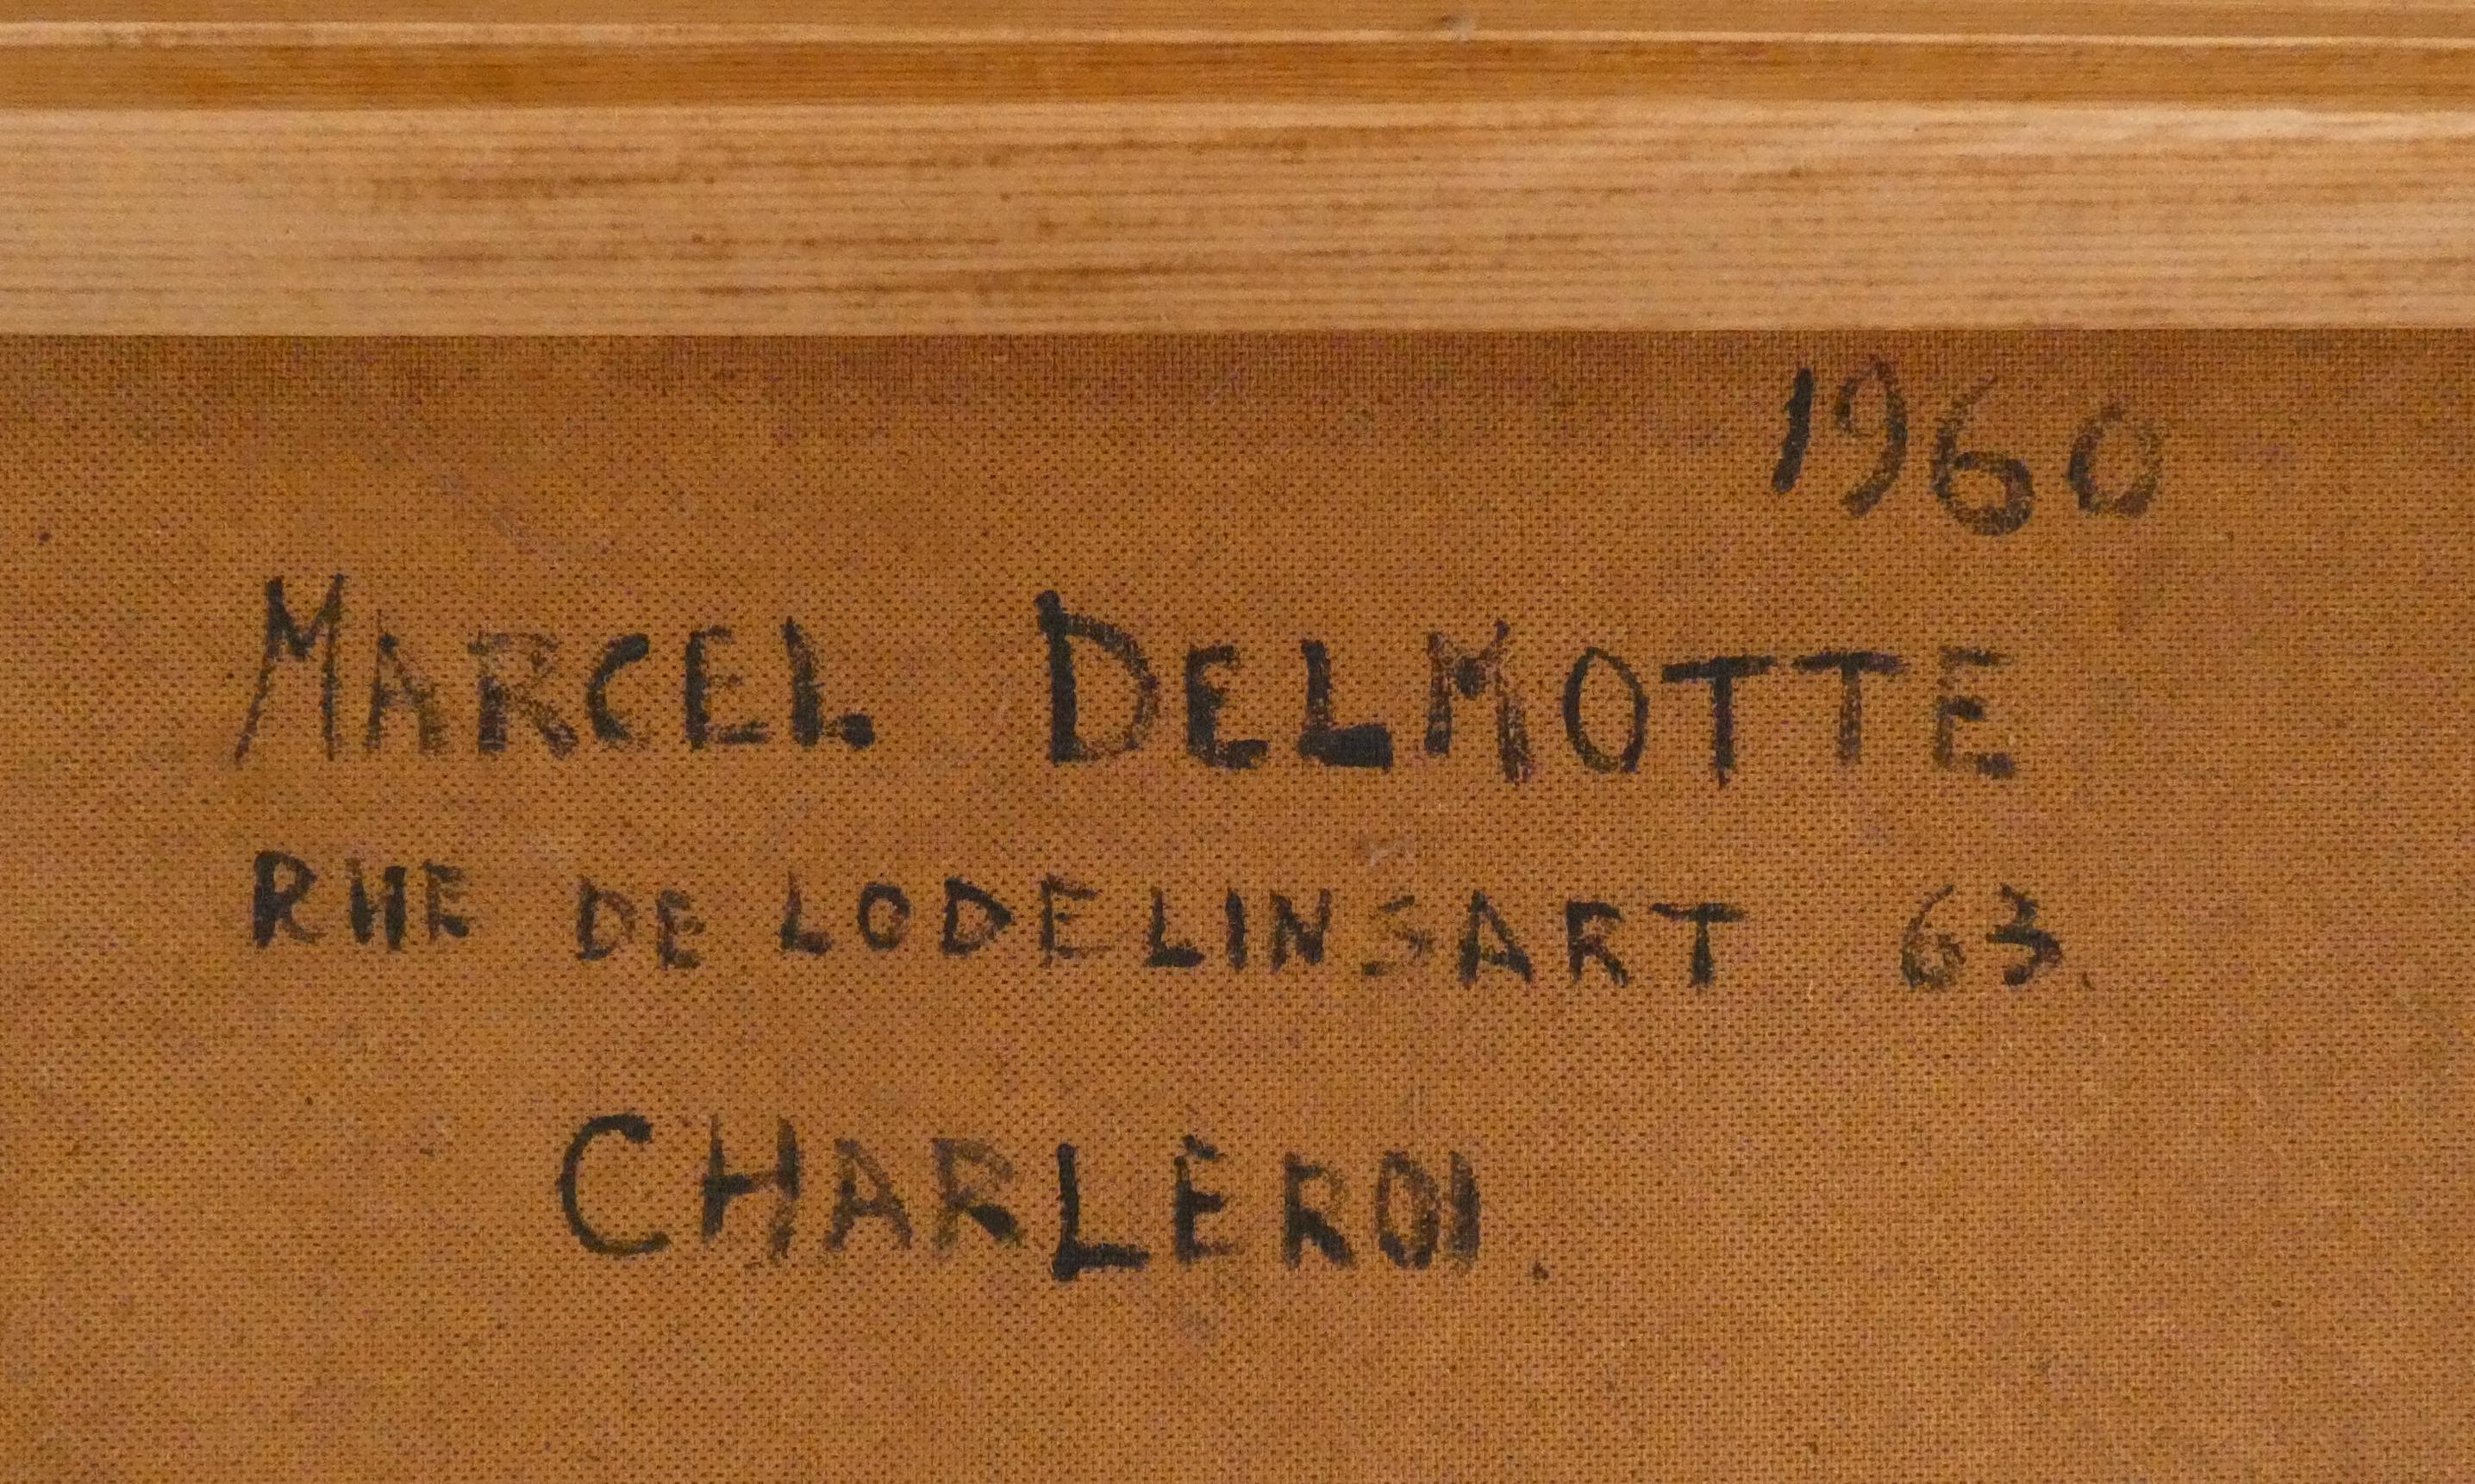 1960
MARCEL DELMOTTE
RUE DE LODELINSART 63.
CHARLÈROI.